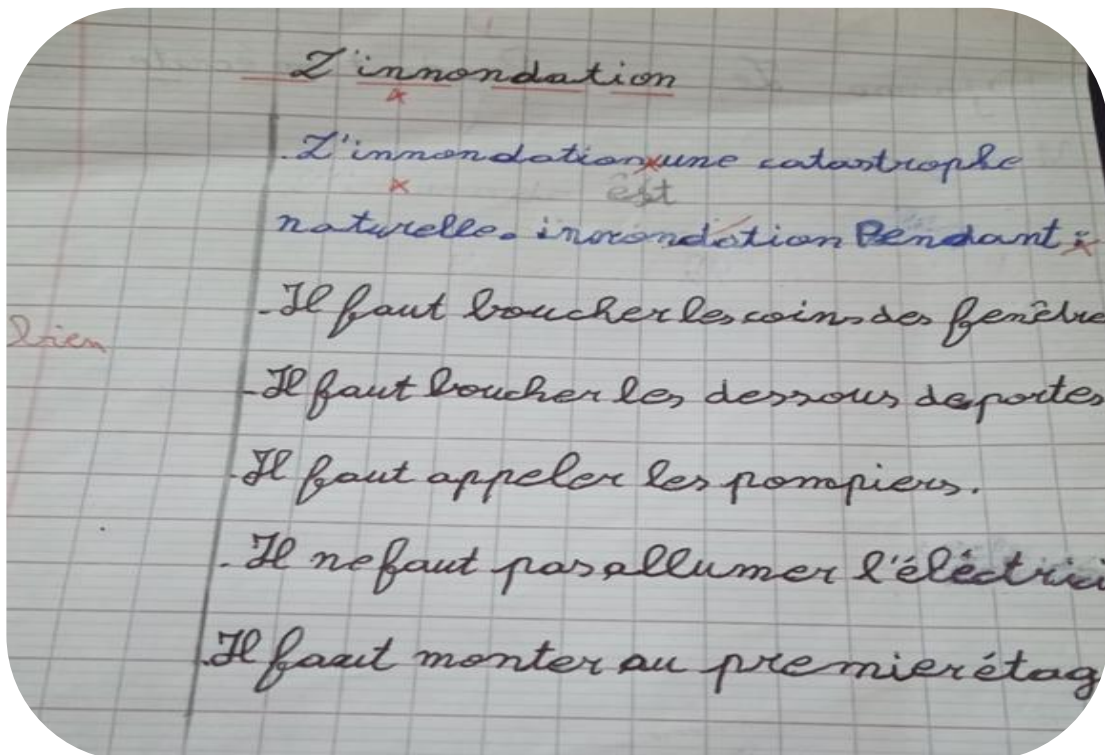 L'innondation
L'innondation une catastrophe
est
naturelle. innondation Pendant :
- Il faut boucher les coins des fenêtre
bien
- Il faut boucher les dessous de portes
- Il faut appeler les pompiers.
- Il ne faut pas allumer l'éléctrici
- Il faut monter au premier étag